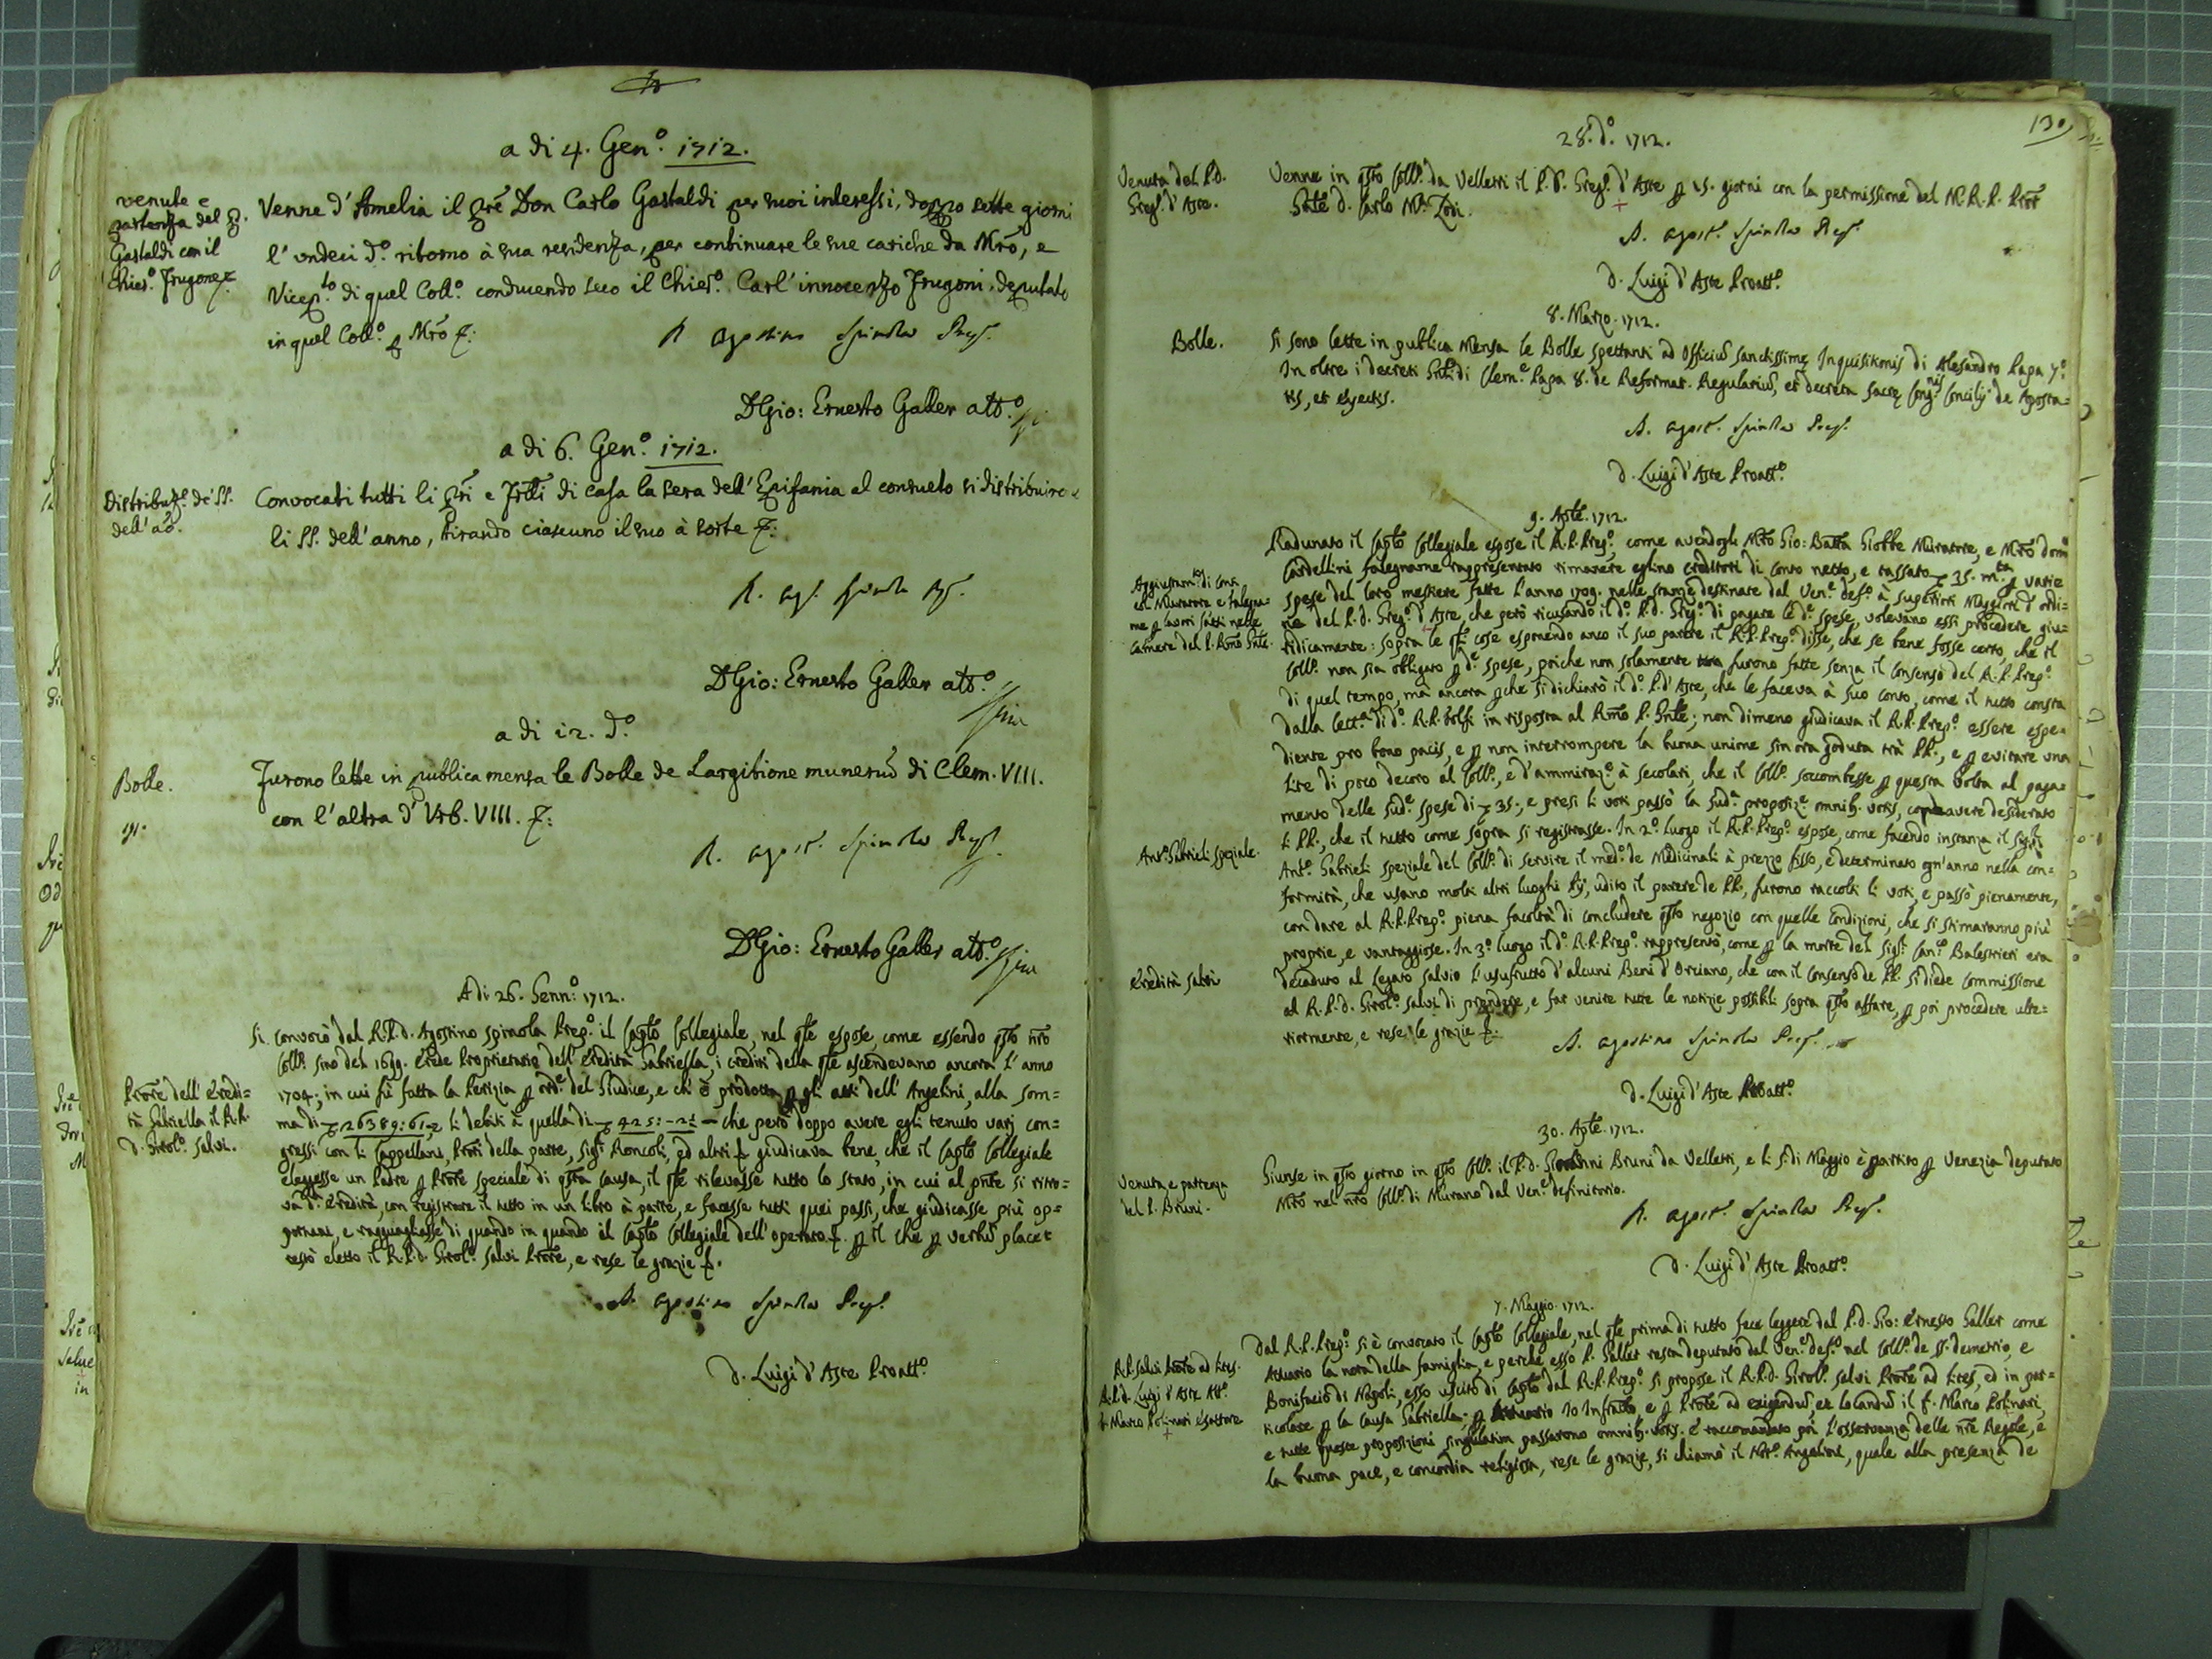 a di 4. Gen.º 1712.
venute e
partenza del P.
Gastaldi con il
Chier.º Frugone &.
Venne d'Amelia il Prē Don Carlo Gastaldi per suoi interessi, doppo sette giorni
l'undeci d.º ritorno à sua residenza, per continuare le sue cariche da Mrõ, e
Vicep.to di quel Coll.º conducendo seco il Chier.º Carl'innocenzo Frugoni, deputato
in quel Coll.º p Mrõ &:
A. Agostino Spinola Prep.
D Gio: Ernesto Galler att.º
a di 6. Gen.º 1712.
Distribuz.e de SS.
dell'aõ.
Convocati tutti li Pri e Frlli di casa la sera dell'Epifania al consueto si distribuire
li SS. dell'anno, tirando ciascuno il suo à sorte &:
A. Ag. Spinola Prep.
D Gio: Ernesto Galler att.º
a di 12. d.º
Bolle.
Furono lette in publica mensa le Bolle de Largitione munerũ di Clem. VIII.
con l'altra d'Urb. VIII. &:
A. Agost. Spinola Prep.
D Gio: Ernesto Galler att.º
A di 26. Genn.º 1712.
Si convocò dal R.P.D. Agostino Spinola Prep.º il Caplõ Collegiale, nel qle espose, come essendo qsto nrõ
Coll.º sino del 1699. Erede Proprietario dell'Eredità Gabriella, i crediti della qle ascendevano ancora l'anno
Prõre dell'Eredi=
tà Gabriella il R.P.
D. Girol.º Salvi.
1704; in cui fù fatta la Perizia p ord.e del Giudice, e ch'è prodotta p gli atti dell'Angelini, alla som=
ma di 26389:61½ li debiti à quella di 425:-2½ - che però doppo avere egli tenuto varj con=
gressi con li Cappellani, Prõri della parte, Sig.ri Roncoli, ed altri & giudicava bene, che il Caplõ Collegiale
eleggesse un Padre p Prõre speciale di qsta Causa, il qle rilevasse tutto lo stato, in cui al pñte si ritro=
va d.a Eredità, con registrare il tutto in un libro à parte, e facesse tutti quei passi, che giudicasse più op=
portuni, e ragguagliasse di quando in quando il Caplõ Collegiale dell'operato &. p il che p verbũ placet
restò eletto il R.P.D. Girol.º Salvi Prõre, e rese le grazie &.
A. Agostino Spinola Prep.
D. Luigi d'Aste Proatt.º
130
28. d.º 1712.
Venuta del P.D.
Greg.º d'Aste.
Venne in qsto Coll.º da Velletri il P.D. Greg.º d'Aste p 15. giorni con la permissione del M.R.P. Prõr
Gnle D. Carlo M.a Lodi.
A. Agost. Spinola Prep.
D. Luigi d'Aste Proatt.º
8. Marzo. 1712.
Bolle.
Si sono lette in publica Mensa le Bolle spettanti ad Officiũ Sanctissime Inquisitionis di Alesandro Papa 7.º
In oltre i decreti Gnli di Clem.e Papa 8. de Reformat. Regulariũ, et decreta Sacre Cong.nis Concilij de Aposta=
tis, et ejectis.
A. Agost. Spinola Prep.
D. Luigi d'Aste Proatt.º
9. Aple. 1712.
Radunato il Caplõ Collegiale espose il R.P. Prep.º, come avendogli Mrõ Gio: Batta Giobbe Muratore, e Mrõ Dom.
Cardellini falegname rappresentato rimanere eglino creditori di conto netto, e tassato 35. m.ta p varie
Aggiustam.to di conti
col Muratore e falegna=
me p lavori fatti nelle
camere del P. Rmõ Gnle.
spese del loro mestiere fatte l'anno 1709. nelle stanze destinate dal Ven.e Def.º à Superiori Maggiori d'ordi=
ne del P.D. Greg.º d'Aste, che però ricusando il d.º P.D. Greg.º di pagare le d.e spese, volevano essi procedere giu=
ridicamente: sopra le qli cose esponendo anco il suo parere il R.P. Prep.º disse, che se bene fosse certo, che il
Coll.º non sia obligato p d.e spese, poiche non solamente furono fatte senza il consenso del R.P. Prep.º
di quel tempo, mà ancora pche si dichiarò il d.º P. d'Aste, che le faceva à suo conto, come il tutto consta
dalla lett.a di d.º R.P. in risposta al Rmõ P. Gnle; non dimeno giudicava il R.P. Prep.º essere espe=
diente pro bono pacis, e p non interrompere la buona unione sin ora goduta trà PP., e p evitare una
lite di poco decoro al Coll.º, e d'ammiraz.e à secolari, che il Coll.º soccombesse p questa volta al paga=
mento delle sud.e spese di 35; e presi li voti passò la sud.a proposiz.e omnib. votis, con avere desiderato
li PP., che il tutto come sopra si registrasse. In 2.º luogo il R.P. Prep.º espose, come facendo instanza il Sig.r
Ant.º Gabrieli speziale.
Ant.º Gabrieli speziale del Coll.º di servire il med.º de Medicinali à prezzo fisso, e determinato ogn'anno nella con=
formità, che usano molti altri luoghi pij, udito il parere de PP., furono raccolti li voti, e passò pienamente,
con dare al R.P. Prep.º piena facoltà di concludere qsto negozio con quelle condizioni, che si stimaranno più
proprie, e vantaggiose. In 3.º luogo il d.º R.P. Prep.º rappresentò, come p la morte del Sig.r Can.co Balestrieri era
Eredità Salvio
decaduto al Legato Salvio l'usufrutto d'alcuni Beni d'Orciano, che con il consenso de PP. si diede commissione
al R.P.D. Girol.º Salvi di prendere, e far venire tutte le notizie possibili sopra qsto affare, p poi procedere ulte=
riormente, e rese le grazie &:
A. Agostino Spinola Prep.
D. Luigi d'Aste Proatt.º
30. Aple. 1712.
Venuta e partenza
del P. Bruni.
Giunse in qsto giorno in qsto Coll.º il P.D. Giovanni Bruni da Velletri, e li 5. di Maggio è partito p Venezia deputato
Mrõ nel nrõ Coll.º di Murano dal Ven.e definitorio.
A. Agost. Spinola Prep.
D. Luigi d'Aste Proatt.º
7. Maggio. 1712.
Dal R.P. Prep.º si è convocato il Caplõ Collegiale, nel qle prima di tutto fece leggere dal P.D. Gio: Ernesto Galler come
R.P. Salvi Prõre ad lites.
R.P.D. Luigi d'Aste Att.º
f. Marco Polinari Esattore
Attuario la nota della famiglia, e perchè esso P. Galler resta deputato dal Ven.e Def.º nel Coll.º de SS. Demetrio, e
Bonifacio di Napoli, esso uscito di Caplõ dal R.P. Prep.º si propose il R.P.D. Girol.º Salvi Prõre ad lites, ed in par=
ticolare p la Causa Gabriella; p Attuario Io Infratto, e p Prõre ad exigendũ, et locandũ il f. Marco Polinari,
e tutte queste proposizioni singulatim passarono omnib. votis. E raccomandato poi l'osservanza delle nrē Regole, e
la buona pace, e concordia religiosa, rese le grazie, si chiamò il Not.º Angelini, quale alla presenza de